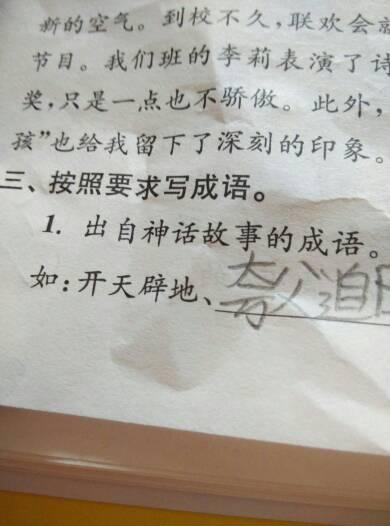 新的空气。到校不久,联欢会
节目。我们班的李莉表演了诗
奖,只是一点也不骄傲。此外,
孩”也给我留下了深刻的印象。
三、按照要求写成语。
1. 出自神话故事的成语。
如:开天辟地、夸父追日